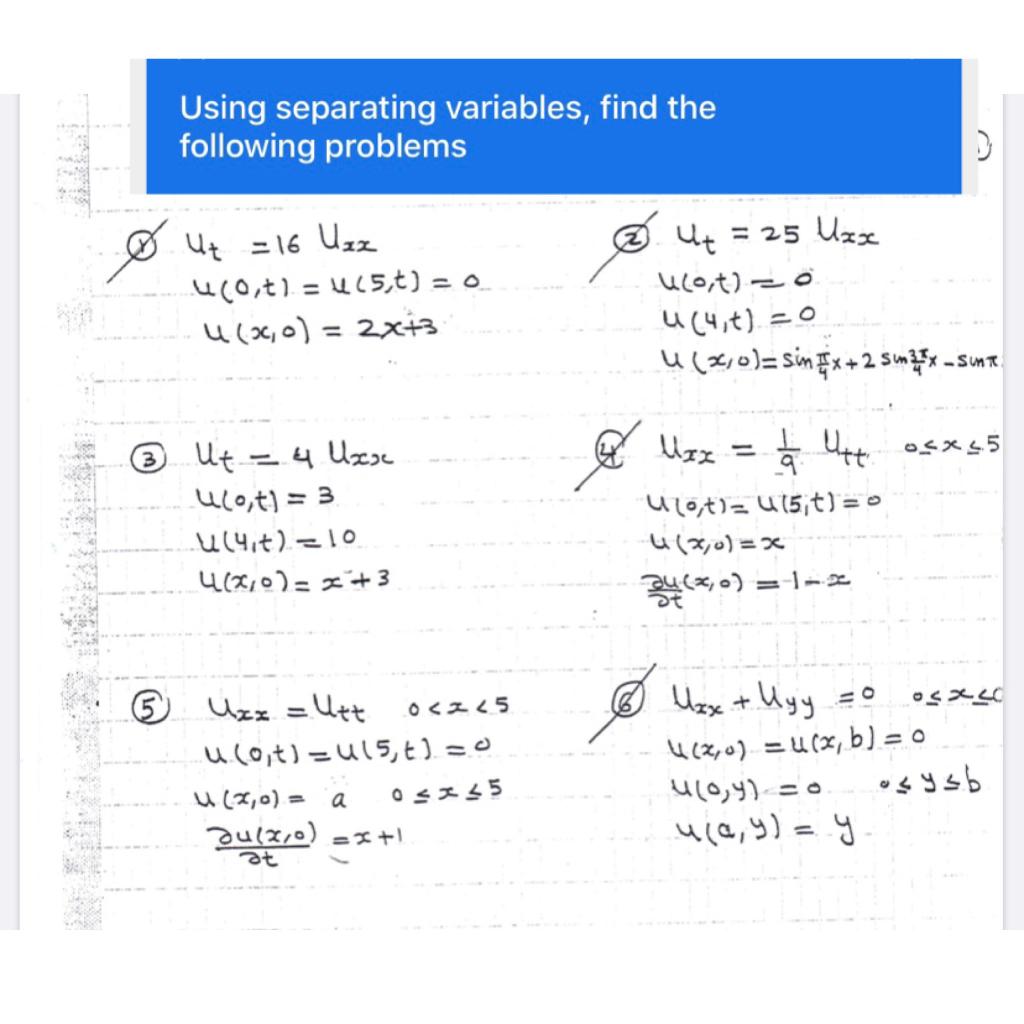 Using separating variables, find the
following problems
① u_t = 16 u_xx
u(0,t) = u(5,t) = 0
u(x,0) = 2x+3
② u_t = 25 u_xx
u(0,t) = 0
u(4,t) = 0
u(x,0) = sin π/4 x + 2 sin 3π/4 x - sin π
③ u_t = 4 u_xx
u(0,t) = 3
u(4,t) = 10
u(x,0) = x + 3
④ u_xx = 1/9 u_tt 0≤x≤5
u(0,t) = u(5,t) = 0
u(x,0) = x
∂u/∂t (x,0) = 1-x
⑤ u_xx = u_tt 0<x<5
u(0,t) = u(5,t) = 0
u(x,0) = a 0≤x≤5
∂u(x,0)/∂t = x+1
⑥ u_xx + u_yy = 0 0≤x≤
u(x,0) = u(x,b) = 0
u(0,y) = 0 0≤y≤b
u(a,y) = y